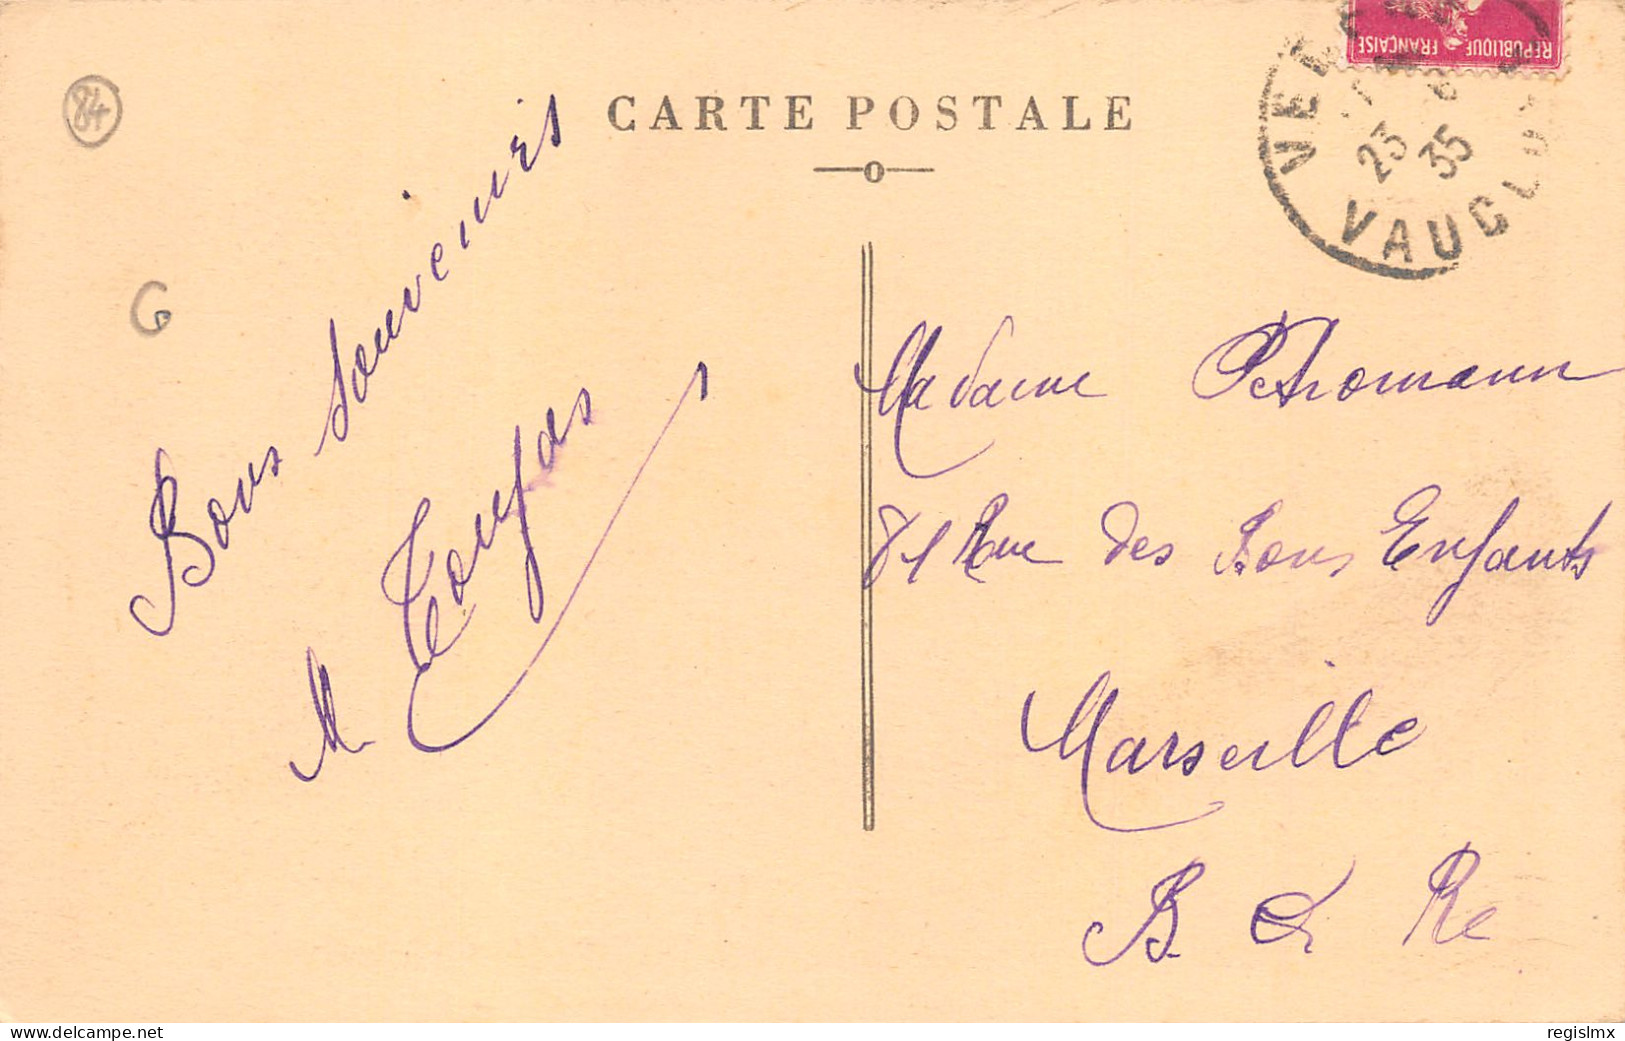 84
CARTE POSTALE
REPUBLIQUE FRANÇAISE
23
35
VAUCLU
G
Bons Souvenirs
M
Madame
81 Rue des Bons Enfants
Marseille
B d Re
www.delcampe.net
regislmx